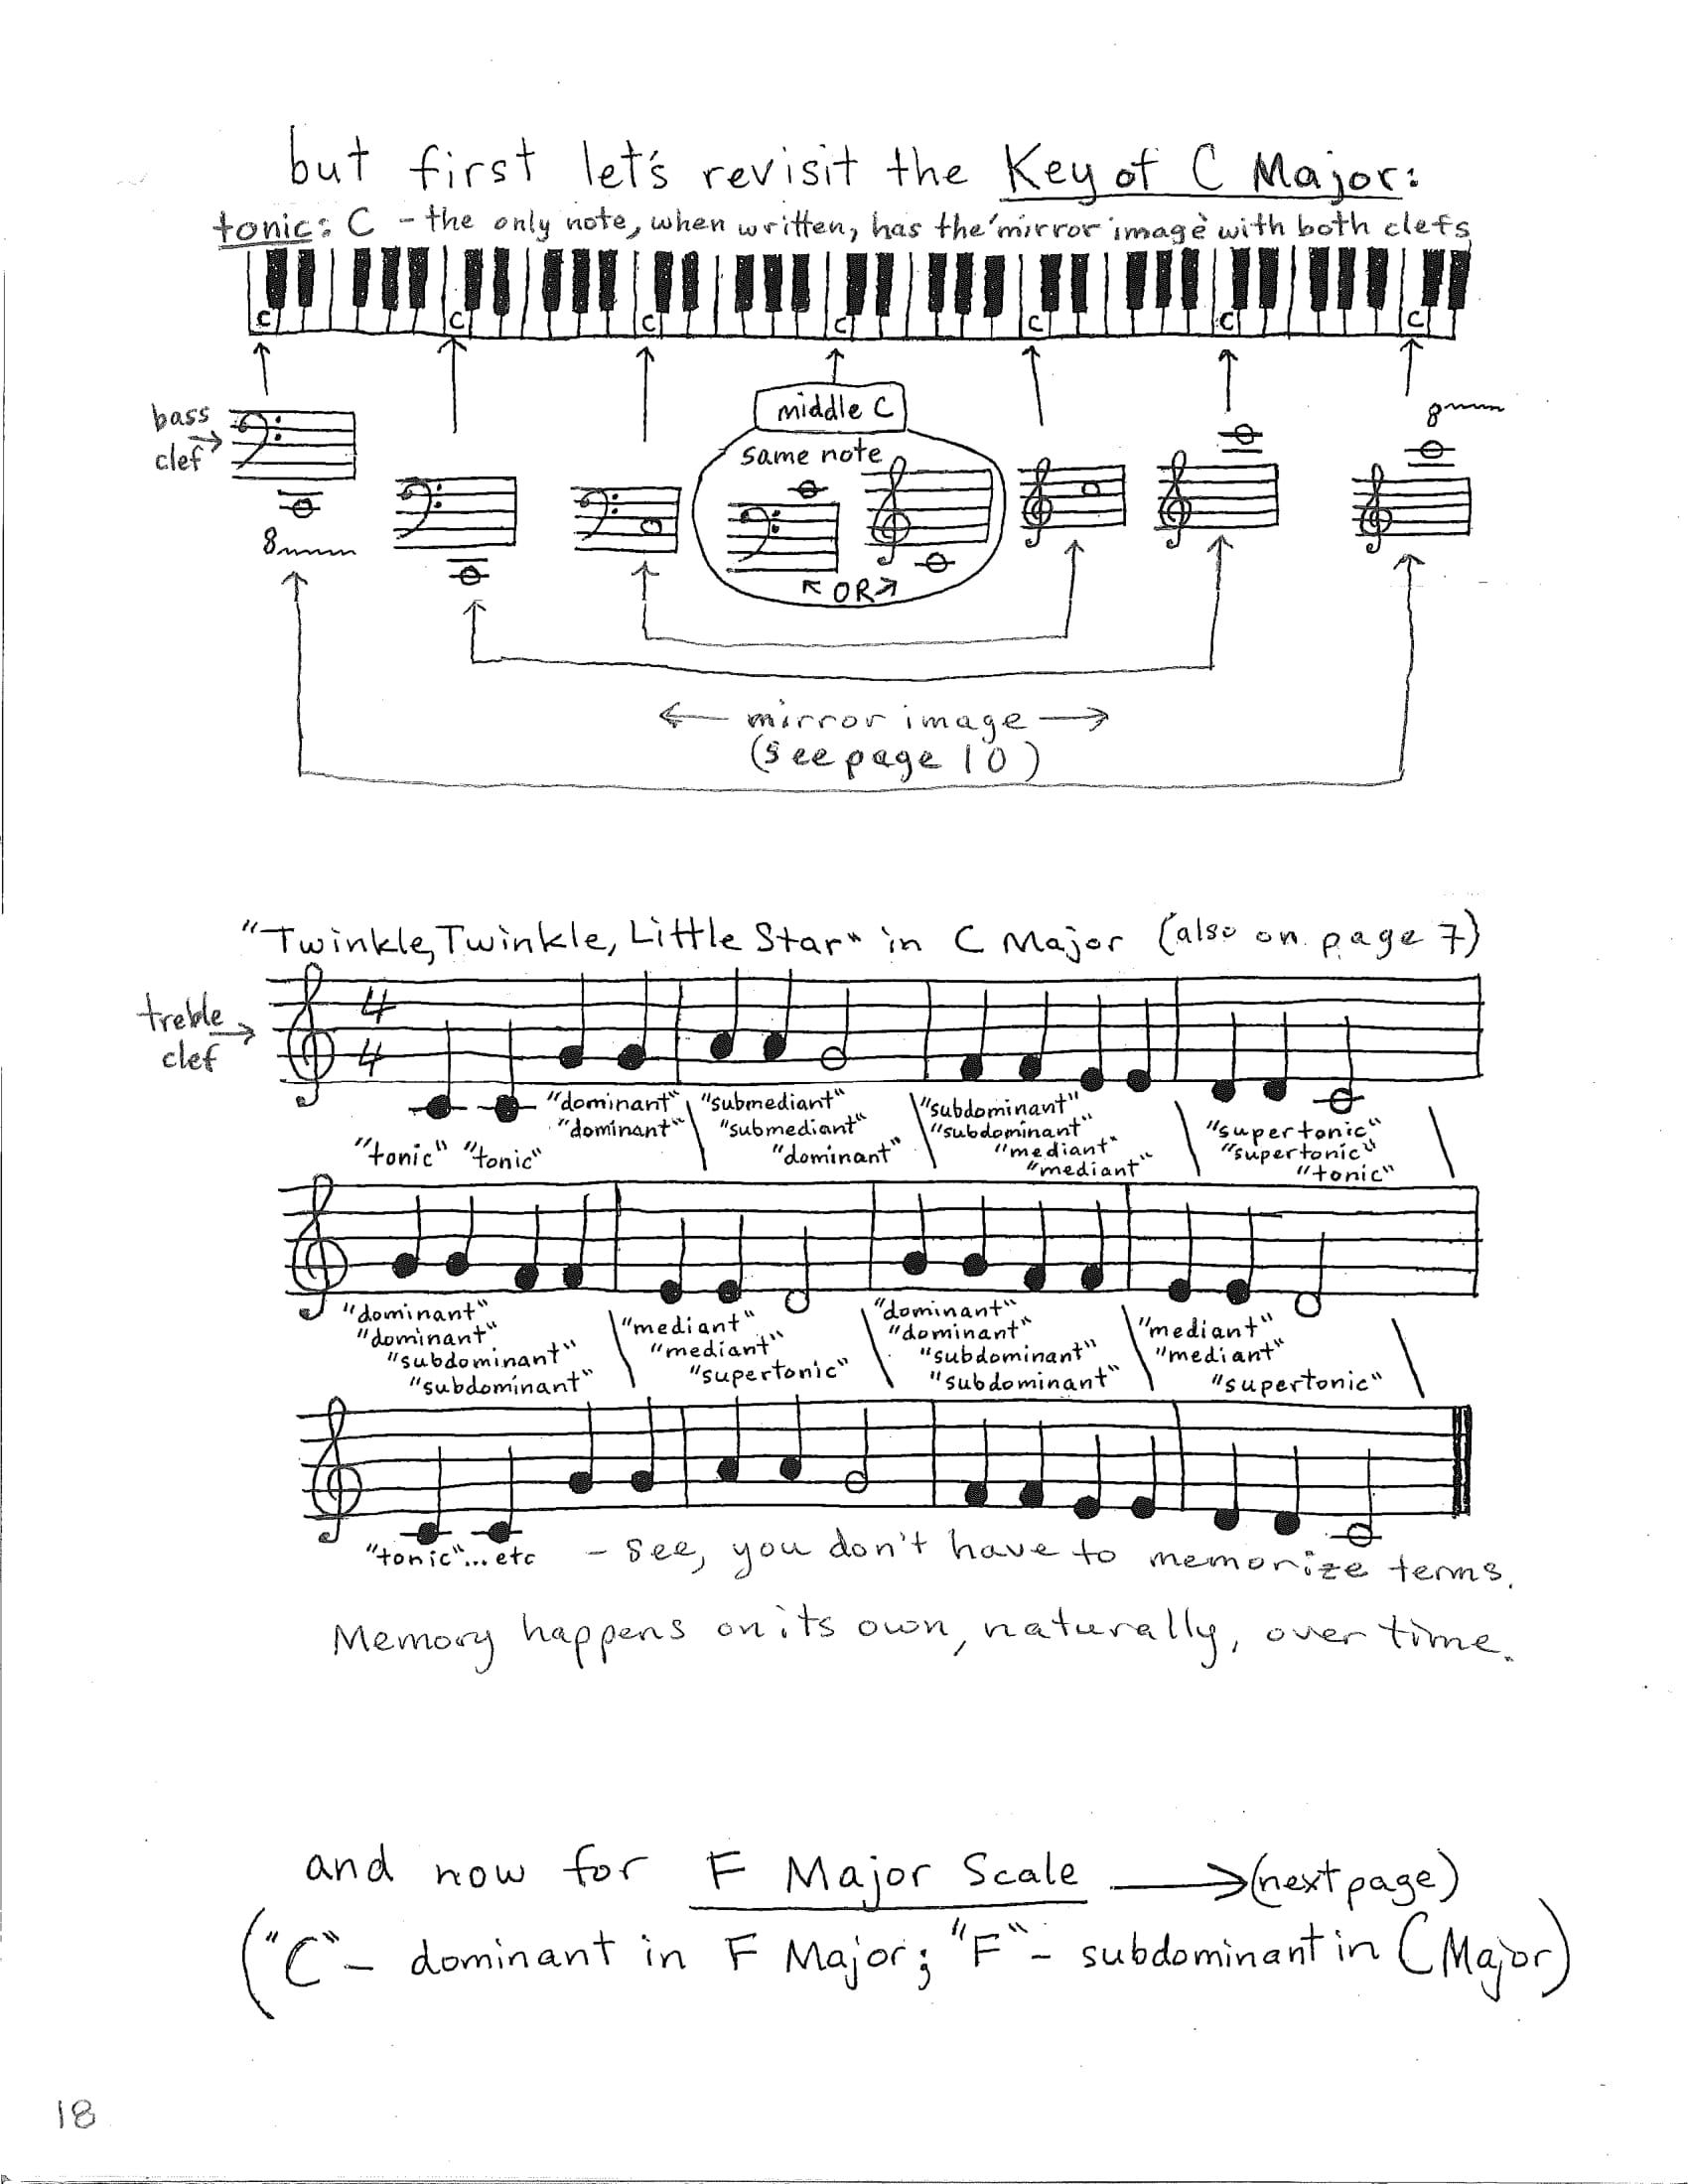 but first let's revisit the Key of C Major:
tonic: C - the only note, when written, has the 'mirror image' with both clefs
C C C C C C C
middle C
8
bass
clef
same note
8
OR
mirror image
(see page 10)
"Twinkle, Twinkle, Little Star" in C Major (also on page 7)
treble
clef
4
4
"dominant" "submediant" "subdominant"
"dominant" "submediant" "subdominant" "supertonic"
"tonic" "tonic" "dominant" "mediant" "supertonic"
"mediant" "tonic"
"dominant" "mediant" "dominant" "mediant"
"dominant" "mediant" "dominant" "mediant"
"subdominant" "supertonic" "subdominant" "supertonic"
"subdominant" "subdominant"
"tonic"... etc - see, you don't have to memorize terms.
Memory happens on its own, naturally, over time.
and now for F Major Scale (next page)
("C" - dominant in F Major; "F" - subdominant in C Major)
18